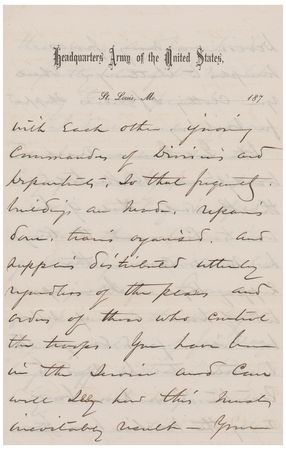 Headquarters Army of the United States,
St. Louis, Mo. 187
with each other, ignoring
Commanders of Divisions and
Departments, so that frequently
buildings are made, repairs
done, trains organised, and
supplies distributed utterly
regardless of the plans and
orders of those who control
the troops. You have been
in the Service and can
well see how this must
inevitably result — Your